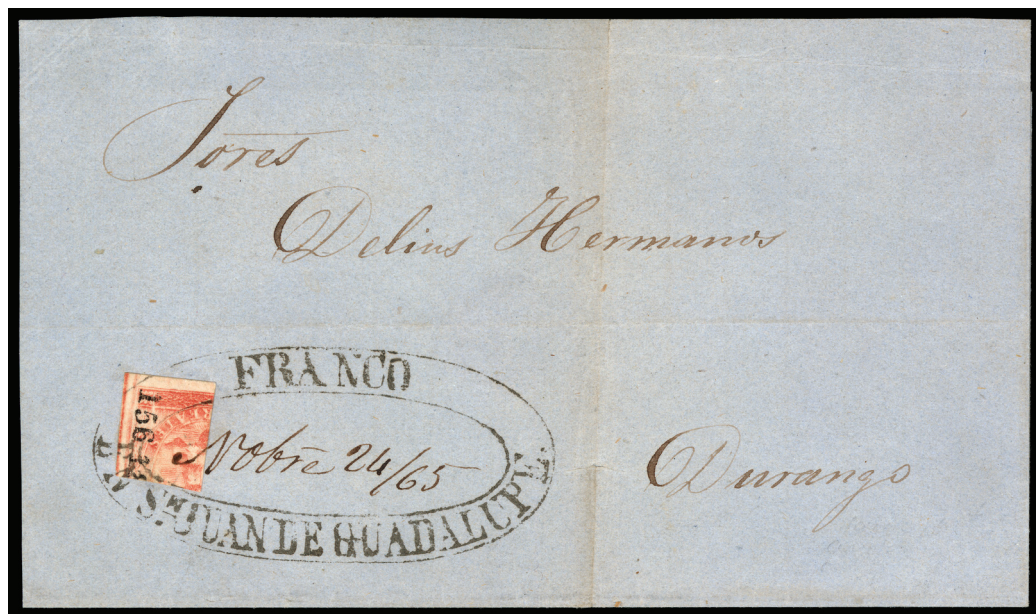 Sores
Delius Hermanos
FRANCO
Nobre 24/65
Sn JUAN DE GUADALUPE.
Durango